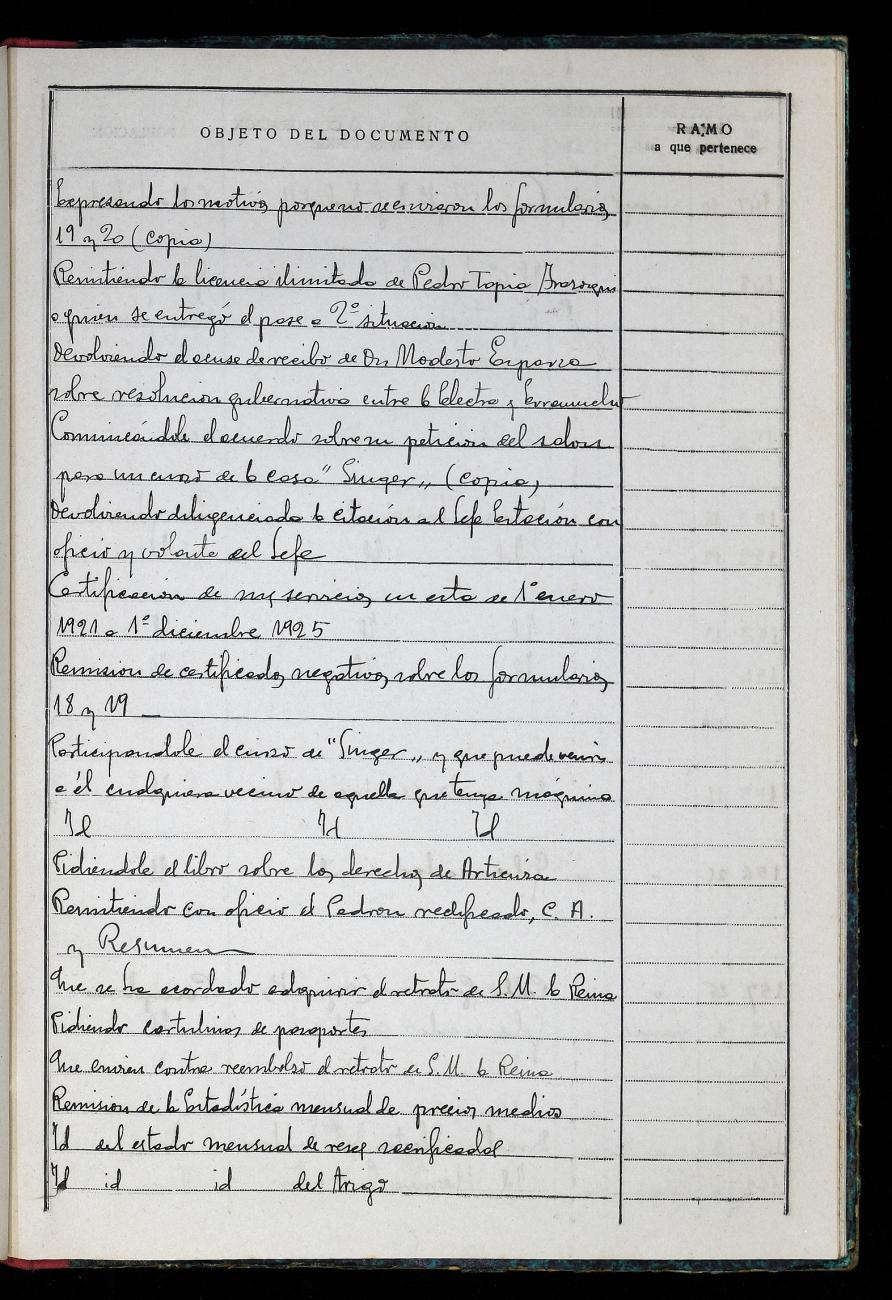 OBJETO DEL DOCUMENTO
RAMO
a que pertenece
Expresando los motivos porque no se enviaron los formularios
19 y 20 (copia)
Remitiendo la licencia ilimitada de Pedro Tapia
a quien se entregó el pase a 2ª situación
Devolviendo el acuse de recibo de Dn Modesto Esparza
sobre resolucion gubernativa entre la Electra y
Comunicándole el acuerdo sobre su petición del salon
para un curso de la casa "Singer" (copia)
Devolviendo diligenciada la citación al Jefe Estación con
oficio y volante del Jefe
Certificacion de mis servicios en esta de 1º enero
1921 a 1º diciembre 1925
Remision de certificados negativos sobre los formularios
18 y 19
Participandole el curso de "Singer" y que puede venir
a él cualquiera vecino de aquella que tenga máquina
Id Id Id
Pidiendole el libro sobre los derechos de Artieda
Remitiendo con oficio el Padron rectificado, C. A.
y Resumen
Que se ha acordado adquirir el retrato de S. M. la Reina
Pidiendo cartulinas de pasaportes
Que envien contra reembolso el retrato de S. M. la Reina
Remision de la Estadística mensual de precios medios
Id del estado mensual de reses sacrificadas
Id id id del trigo